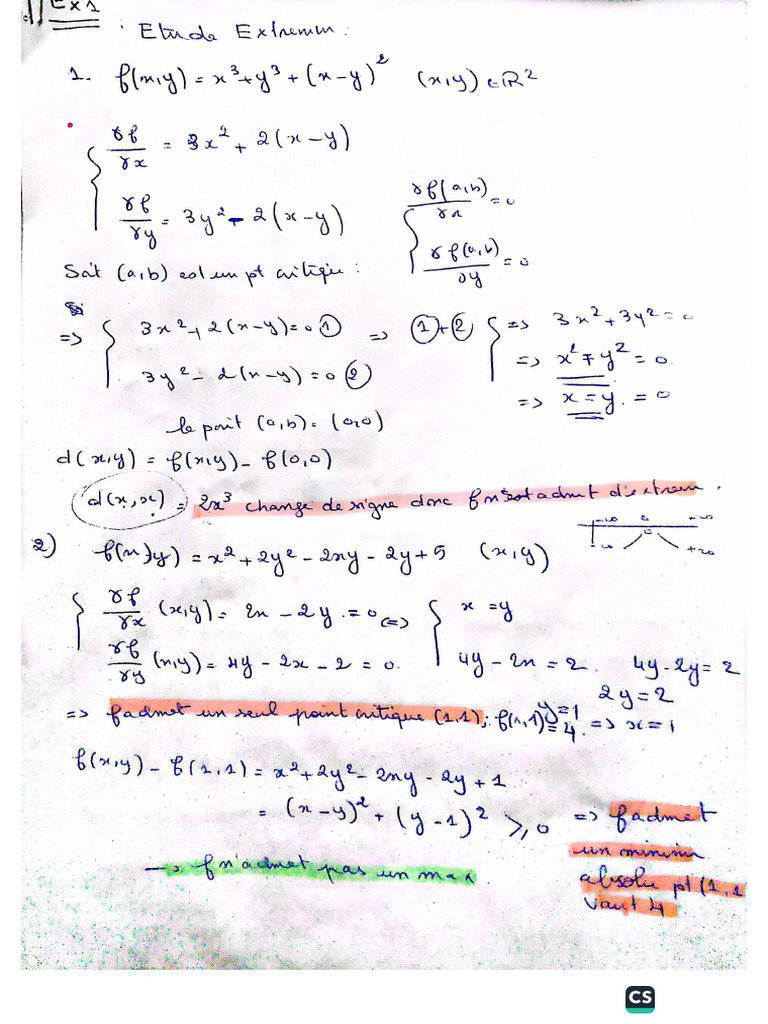 Ex1
: Etude Extremum :
1. f(x,y) = x³+y³+(x-y)² (x,y)∈ℝ²
{ ∂f/∂x = 3x² + 2(x-y)
∂f/∂y = 3y² - 2(x-y)
{ ∂f(a,b)/∂x = 0
∂f(a,b)/∂y = 0
Soit (a,b) est un pt critique :
=> { 3x²+2(x-y)=0 ① => ①+② { => 3x²+3y²=0
3y²-2(x-y)=0 ② => x²+y²=0.
=> x=y.=0
le point (a,b)=(0,0)
d(x,y) = f(x,y)-f(0,0)
d(x,x) = 2x³ change de signe donc f d'extrem.
-∞ 0 +∞
-∞ 0 +∞
2) f(x,y) = x²+2y²-2xy-2y+5 (x,y)
{ ∂f/∂x (x,y)= 2x-2y.=0 <=> { x=y
∂f/∂y (x,y)= 4y-2x-2=0. 4y-2x=2. 4y-2y=2
2y=2
y=1
=> f admet un seul point critique (1,1); f(1,1)=4. => x=1
f(x,y)-f(1,1)= x²+2y²-2xy-2y+1
= (x-y)²+(y-1)² ≥0 => f admet
un minimum
absolu pt (1,1
vaut 4
→ f n'admet pas un max
CS